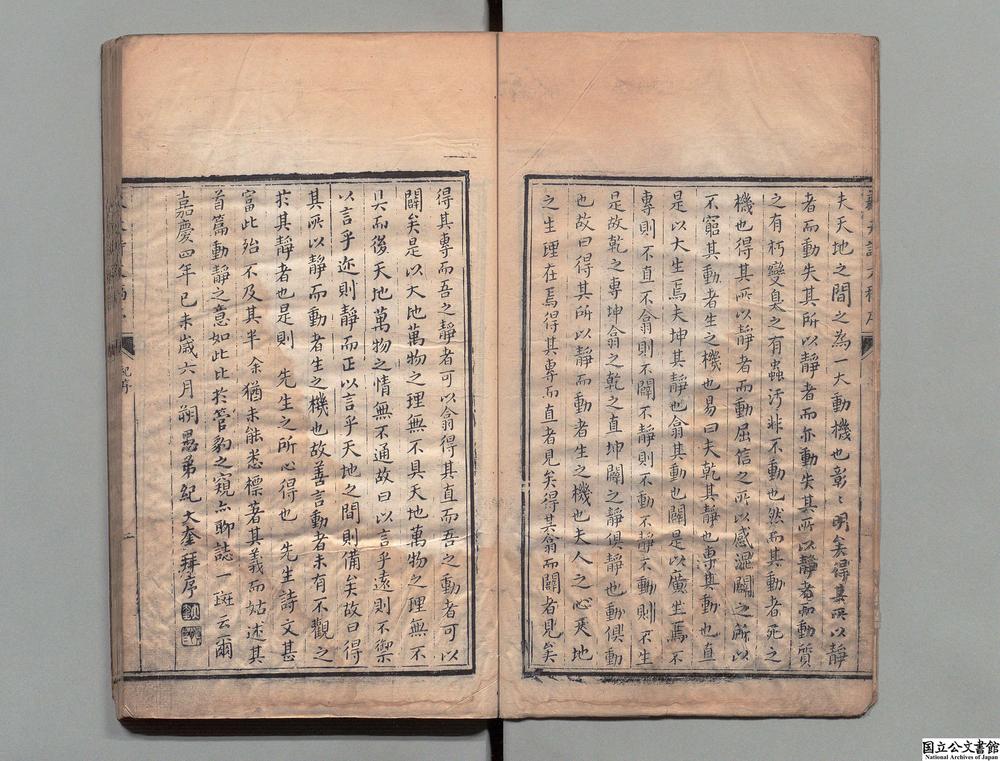 夫天地之間之為一大動機也彰〻明矣得其所以靜
者而動失其所以靜者而亦動失其所以靜者而動質
之有朽變臭之有蟲汚非不動也然而其動者死之
機也得其所以靜者而動屈信之所以感混闢之所以
不窮其動者生之機也易曰夫乾其靜也專其動也直
是以大生焉夫坤其靜也翕其動也闢是以廣生焉不
專則不直不翕則不闢不靜則不動不靜不動則不生
是故乾之專坤翕之乾之直坤闢之靜俱靜也動俱動
也故曰得其所以靜而動者生之機也夫人之心天地
之生理在焉得其專而直者見矣得其翕而闢者見矣
得其專而吾之靜者可以翕得其直而吾之動者可以
闢矣是以天地萬物之理無不具天地萬物之理無不
具而後天地萬物之情無不通故曰以言乎遠則不禦
以言乎迩則靜而正以言乎天地之間則備矣故曰得
其所以靜而動者生之機也故善言動者未有不觀之
於其靜者也是則 先生之所心得也 先生詩文甚
富此殆不及其半余猶未能悉標著其義而姑述其
首篇動靜之意如此比於管豹之窺亦聊誌一斑云爾
嘉慶四年己未歲六月朔愚弟紀大奎拜序
紀序
二
国立公文書館
National Archives of Japan